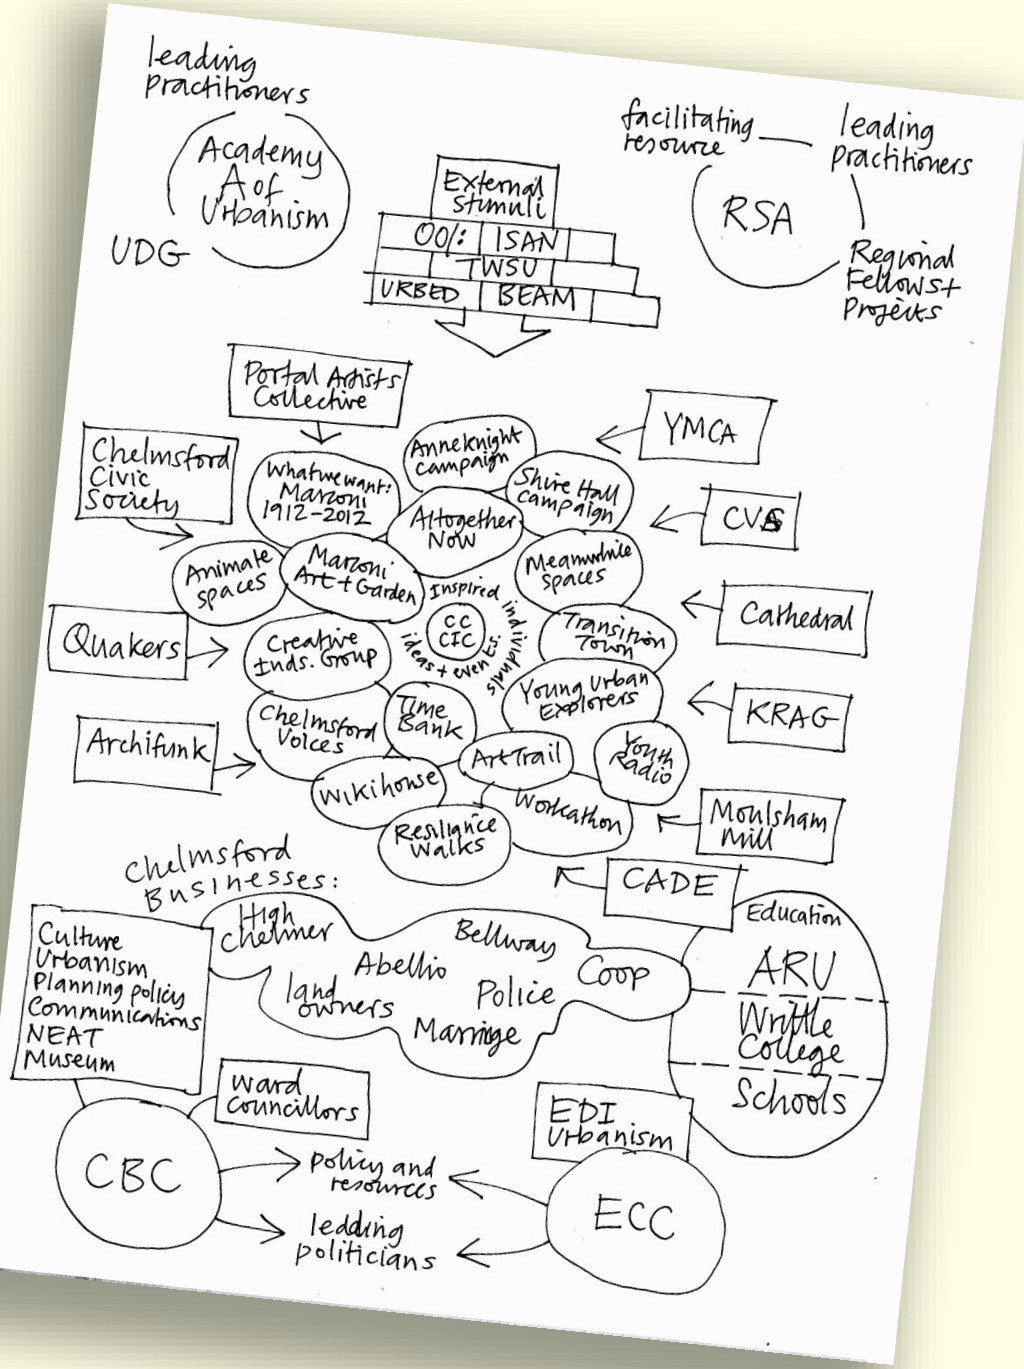 leading
practitioners
Academy
A of
Urbanism
UDG
External
Stimuli
00/:
ISAN
TWSU
URBED
BEAM
facilitating
resource
leading
practitioners
RSA
Regional
Fellows+
Projects
Portal Artists
Collective
Chelmsford
Civic
Society
Quakers
Archifunk
YMCA
CVS
Cathedral
KRAG
Moulsham
Mill
CADE
Anne Knight
campaign
What we want:
Marconi
1912-2012
Shire Hall
campaign
Altogether
Now
Animate
spaces
Marconi
Art + Garden
Meanwhile
spaces
Inspired individuals
ideas + events.
CC
CIC
Creative
Inds. Group
Transition
Town
Young Urban
Explorers
Chelmsford
Voices
Time
Bank
Art Trail
Youth
Radio
Wikihouse
Workathon
Resiliance
Walks
Chelmsford
Businesses:
High
Chelmer
Bellway
Abellio
Coop
land
owners
Police
Marriage
Education
ARU
Writtle
College
Schools
Culture
Urbanism
Planning policy
Communications
NEAT
Museum
Ward
Councillors
CBC
policy and
resources
leading
politicians
EDI
Urbanism
ECC